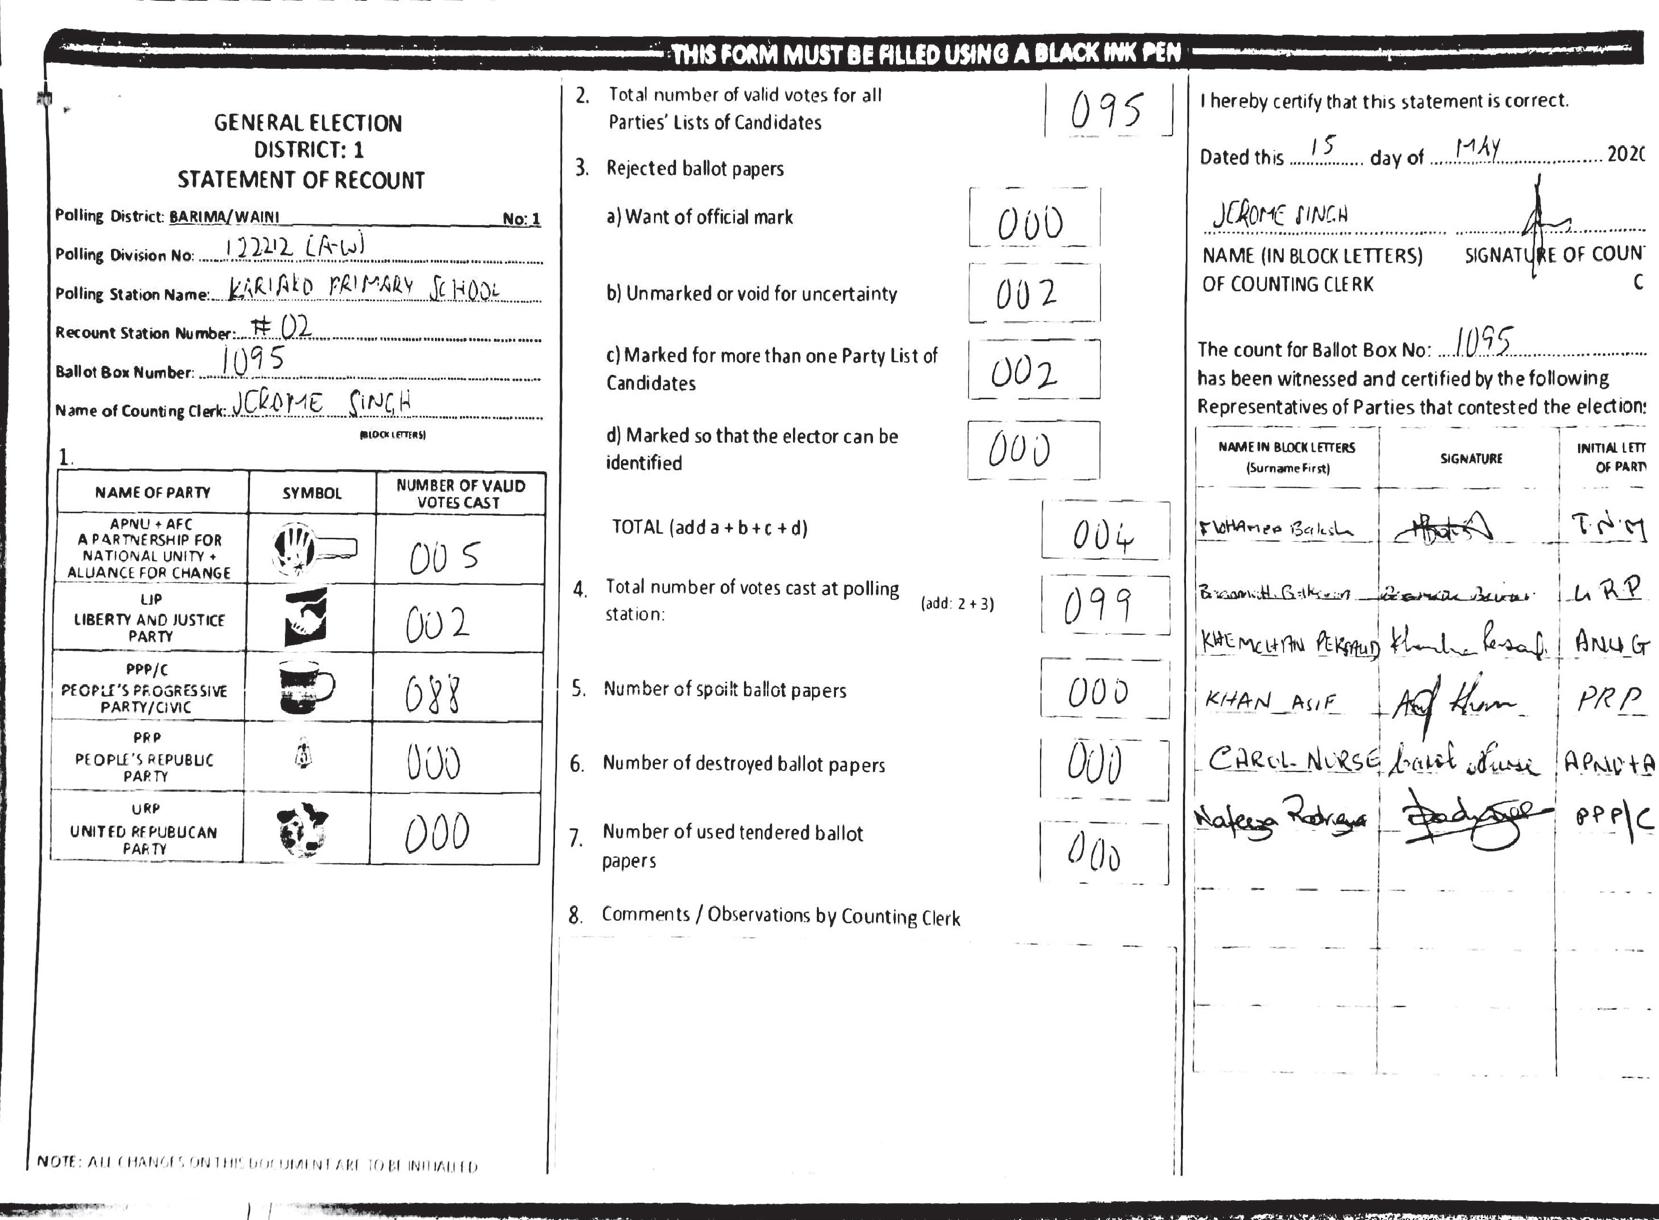 THIS FORM MUST BE FILLED USING A BLACK INK PEN
GENERAL ELECTION
DISTRICT: 1
STATEMENT OF RECOUNT
Polling District: BARIMA/WAINI No: 1
Polling Division No: 122212 (A-W)
Polling Station Name: KARIAKO PRIMARY SCHOOL
Recount Station Number: # 02
Ballot Box Number: 1095
Name of Counting Clerk: JEROME SINGH
(BLOCK LETTERS)
1.
NAME OF PARTY SYMBOL NUMBER OF VALID VOTES CAST
APNU + AFC
A PARTNERSHIP FOR
NATIONAL UNITY +
ALLIANCE FOR CHANGE
005
LJP
LIBERTY AND JUSTICE
PARTY
002
PPP/C
PEOPLE'S PROGRESSIVE
PARTY/CIVIC
088
PRP
PEOPLE'S REPUBLIC
PARTY
000
URP
UNITED REPUBLICAN
PARTY
000
NOTE: ALL CHANGES ON THIS DOCUMENT ARE TO BE INITIALLED
2. Total number of valid votes for all
Parties' Lists of Candidates
095
3. Rejected ballot papers
a) Want of official mark 000
b) Unmarked or void for uncertainty 002
c) Marked for more than one Party List of
Candidates
002
d) Marked so that the elector can be
identified
000
TOTAL (add a + b + c + d) 004
4. Total number of votes cast at polling
station:
(add: 2 + 3) 099
5. Number of spoilt ballot papers 000
6. Number of destroyed ballot papers 000
7. Number of used tendered ballot
papers
000
8. Comments / Observations by Counting Clerk
I hereby certify that this statement is correct.
Dated this 15 day of MAY 202
JEROME SINGH
NAME (IN BLOCK LETTERS) SIGNATURE OF COUN
OF COUNTING CLERK C
The count for Ballot Box No: 1095
has been witnessed and certified by the following
Representatives of Parties that contested the election
NAME IN BLOCK LETTERS
(Surname First)
SIGNATURE
INITIAL LETT
OF PART
Mohamed Baksh T.N.M
URP
KHEMCHAN PERSAUD ANUG
KHAN ASIF Asif Khan PRP
CAROL NURSE Carol Nurse APNU+A
Nafeeza Rodrigues PPP/C